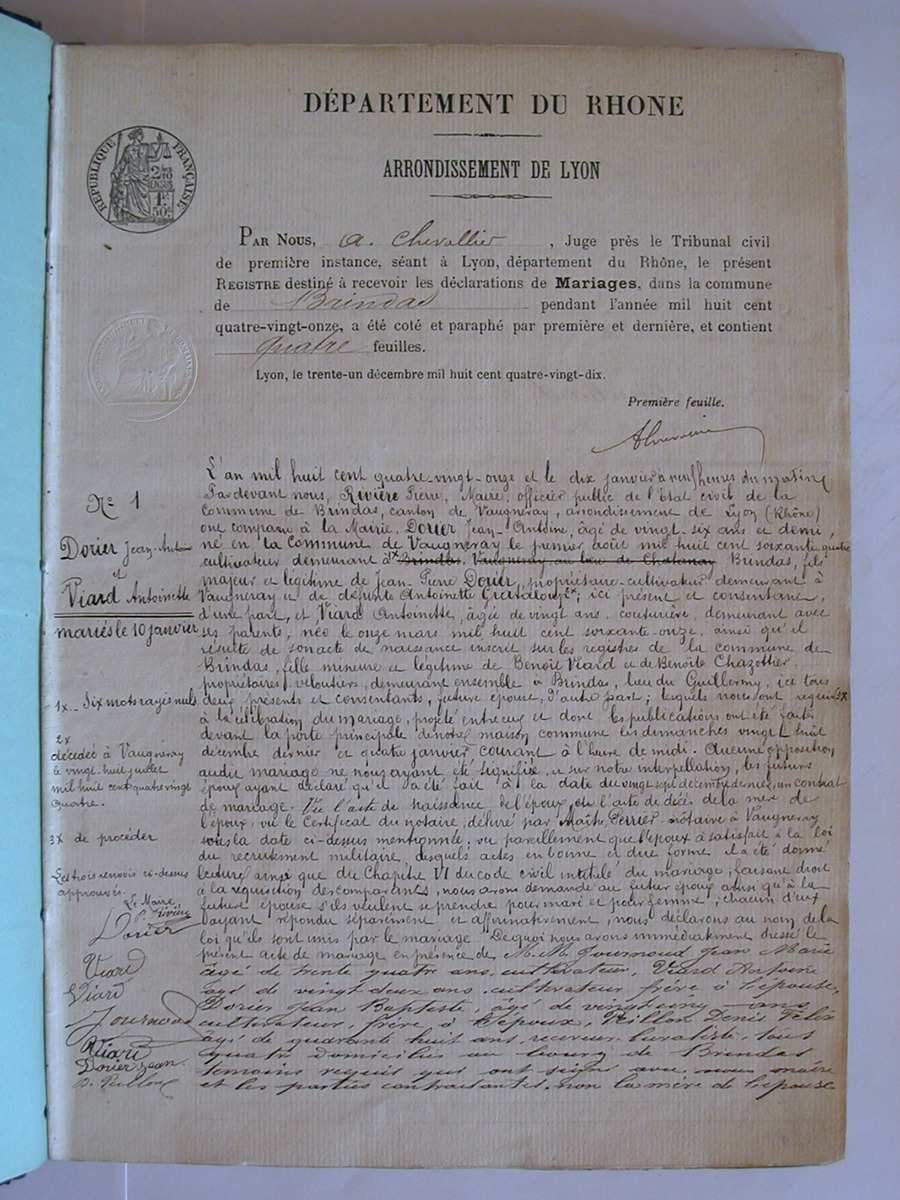 DÉPARTEMENT DU RHONE
ARRONDISSEMENT DE LYON
RÉPUBLIQUE FRANÇAISE
2/10 EN SUS
1F 50c
PAR NOUS, A. Chevallier, Juge près le Tribunal civil
de première instance, séant à Lyon, département du Rhône, le présent
REGISTRE destiné à recevoir les déclarations de Mariages, dans la commune
de Brindas pendant l'année mil huit cent
quatre-vingt-onze, a été coté et paraphé par première et dernière, et contient
quatre feuilles.
Lyon, le trente-un décembre mil huit cent quatre-vingt-dix.
Première feuille.
N° 1
Dorier Jean-Antoine
et
Viard Antoinette
mariés le 10 janvier
1x Six mots rayés nuls
2x
décédée à Vaugneray
le vingt-huit juillet
mil huit cent quatre vingt
quatre.
3x de procéder
Les trois renvois ci-dessus
approuvés.
Le Maire,
P. Rivière
Dorier
Viard
Viard
Journoud
Viard
Dorier Jean
L'an mil huit cent quatre-vingt-onze et le dix janvier à neuf heures du matin
Pardevant nous, Rivière Pierre, Maire, officier public de l'Etat civil de la
Commune de Brindas, canton de Vaugneray, arrondissement de Lyon (Rhône)
ont comparu à la Mairie, Dorier Jean-Antoine, âgé de vingt-six ans et demi
né en la Commune de Vaugneray le premier août mil huit cent soixante-quatre
cultivateur demeurant à 1x Brindas, Vaugneray au lieu de Chatanay Brindas, fils
majeur et légitime de Jean-Pierre Dorier, propriétaire-cultivateur demeurant à
Vaugneray et de défunte Antoinette Grataloup 2x; ici présent et consentant,
d'une part, et Viard Antoinette, âgée de vingt ans, couturière, demeurant avec
ses parents, née le onze mars mil huit cent soixante-onze, ainsi qu'il
résulte de son acte de naissance inscrit sur les registres de la commune de
Brindas, fille mineure et légitime de Benoît Viard et de Benoîte Chazottier,
propriétaires veloutiers, demeurant ensemble à Brindas, lieu du Guillermy, ici tous
deux présents et consentants, future épouse, d'autre part; lesquels nous ont requis 3x
à la célébration du mariage, projeté entre eux et dont les publications ont été faites
devant la porte principale de notre maison commune les dimanches vingt huit
décembre dernier et quatre janvier courant à l'heure de midi. Aucune opposition
audit mariage ne nous ayant été signifiée, et sur notre interpellation, les futurs
époux ayant déclaré qu'il a été fait à la date du vingt sept décembre dernier, un contrat
de mariage. Vu l'acte de naissance de l'époux, vu l'acte de décès de la mère de
l'époux, vu le Certificat du notaire, délivré par Maître Perrier, notaire à Vaugneray
sous la date ci-dessus mentionnée, vu pareillement que l'époux a satisfait à la loi
du recrutement militaire, desquels actes en bonne et due forme il a été donné
lecture ainsi que du Chapitre VI du code civil intitulé du mariage; faisant droit
à la réquisition des comparants, nous avons demandé au futur époux ainsi qu'à la
future épouse s'ils veulent se prendre pour mari et pour femme; chacun d'eux
ayant répondu séparément et affirmativement, nous déclarons au nom de la
loi qu'ils sont unis par le mariage. De quoi nous avons immédiatement dressé le
présent acte de mariage en présence de M.M. Journoud Jean Marie
âgé de trente quatre ans, cultivateur, Viard
âgé de vingt deux ans, cultivateur frère à l'épouse,
Dorier Jean Baptiste, âgé de vingt cinq ans
cultivateur, frère à l'époux, Denis Félix
âgé de quarante huit ans, receveur buraliste, tous
quatre domiciliés au bourg de Brindas
témoins requis qui ont signé avec nous maire
et les parties contractantes, non la mère de l'épouse